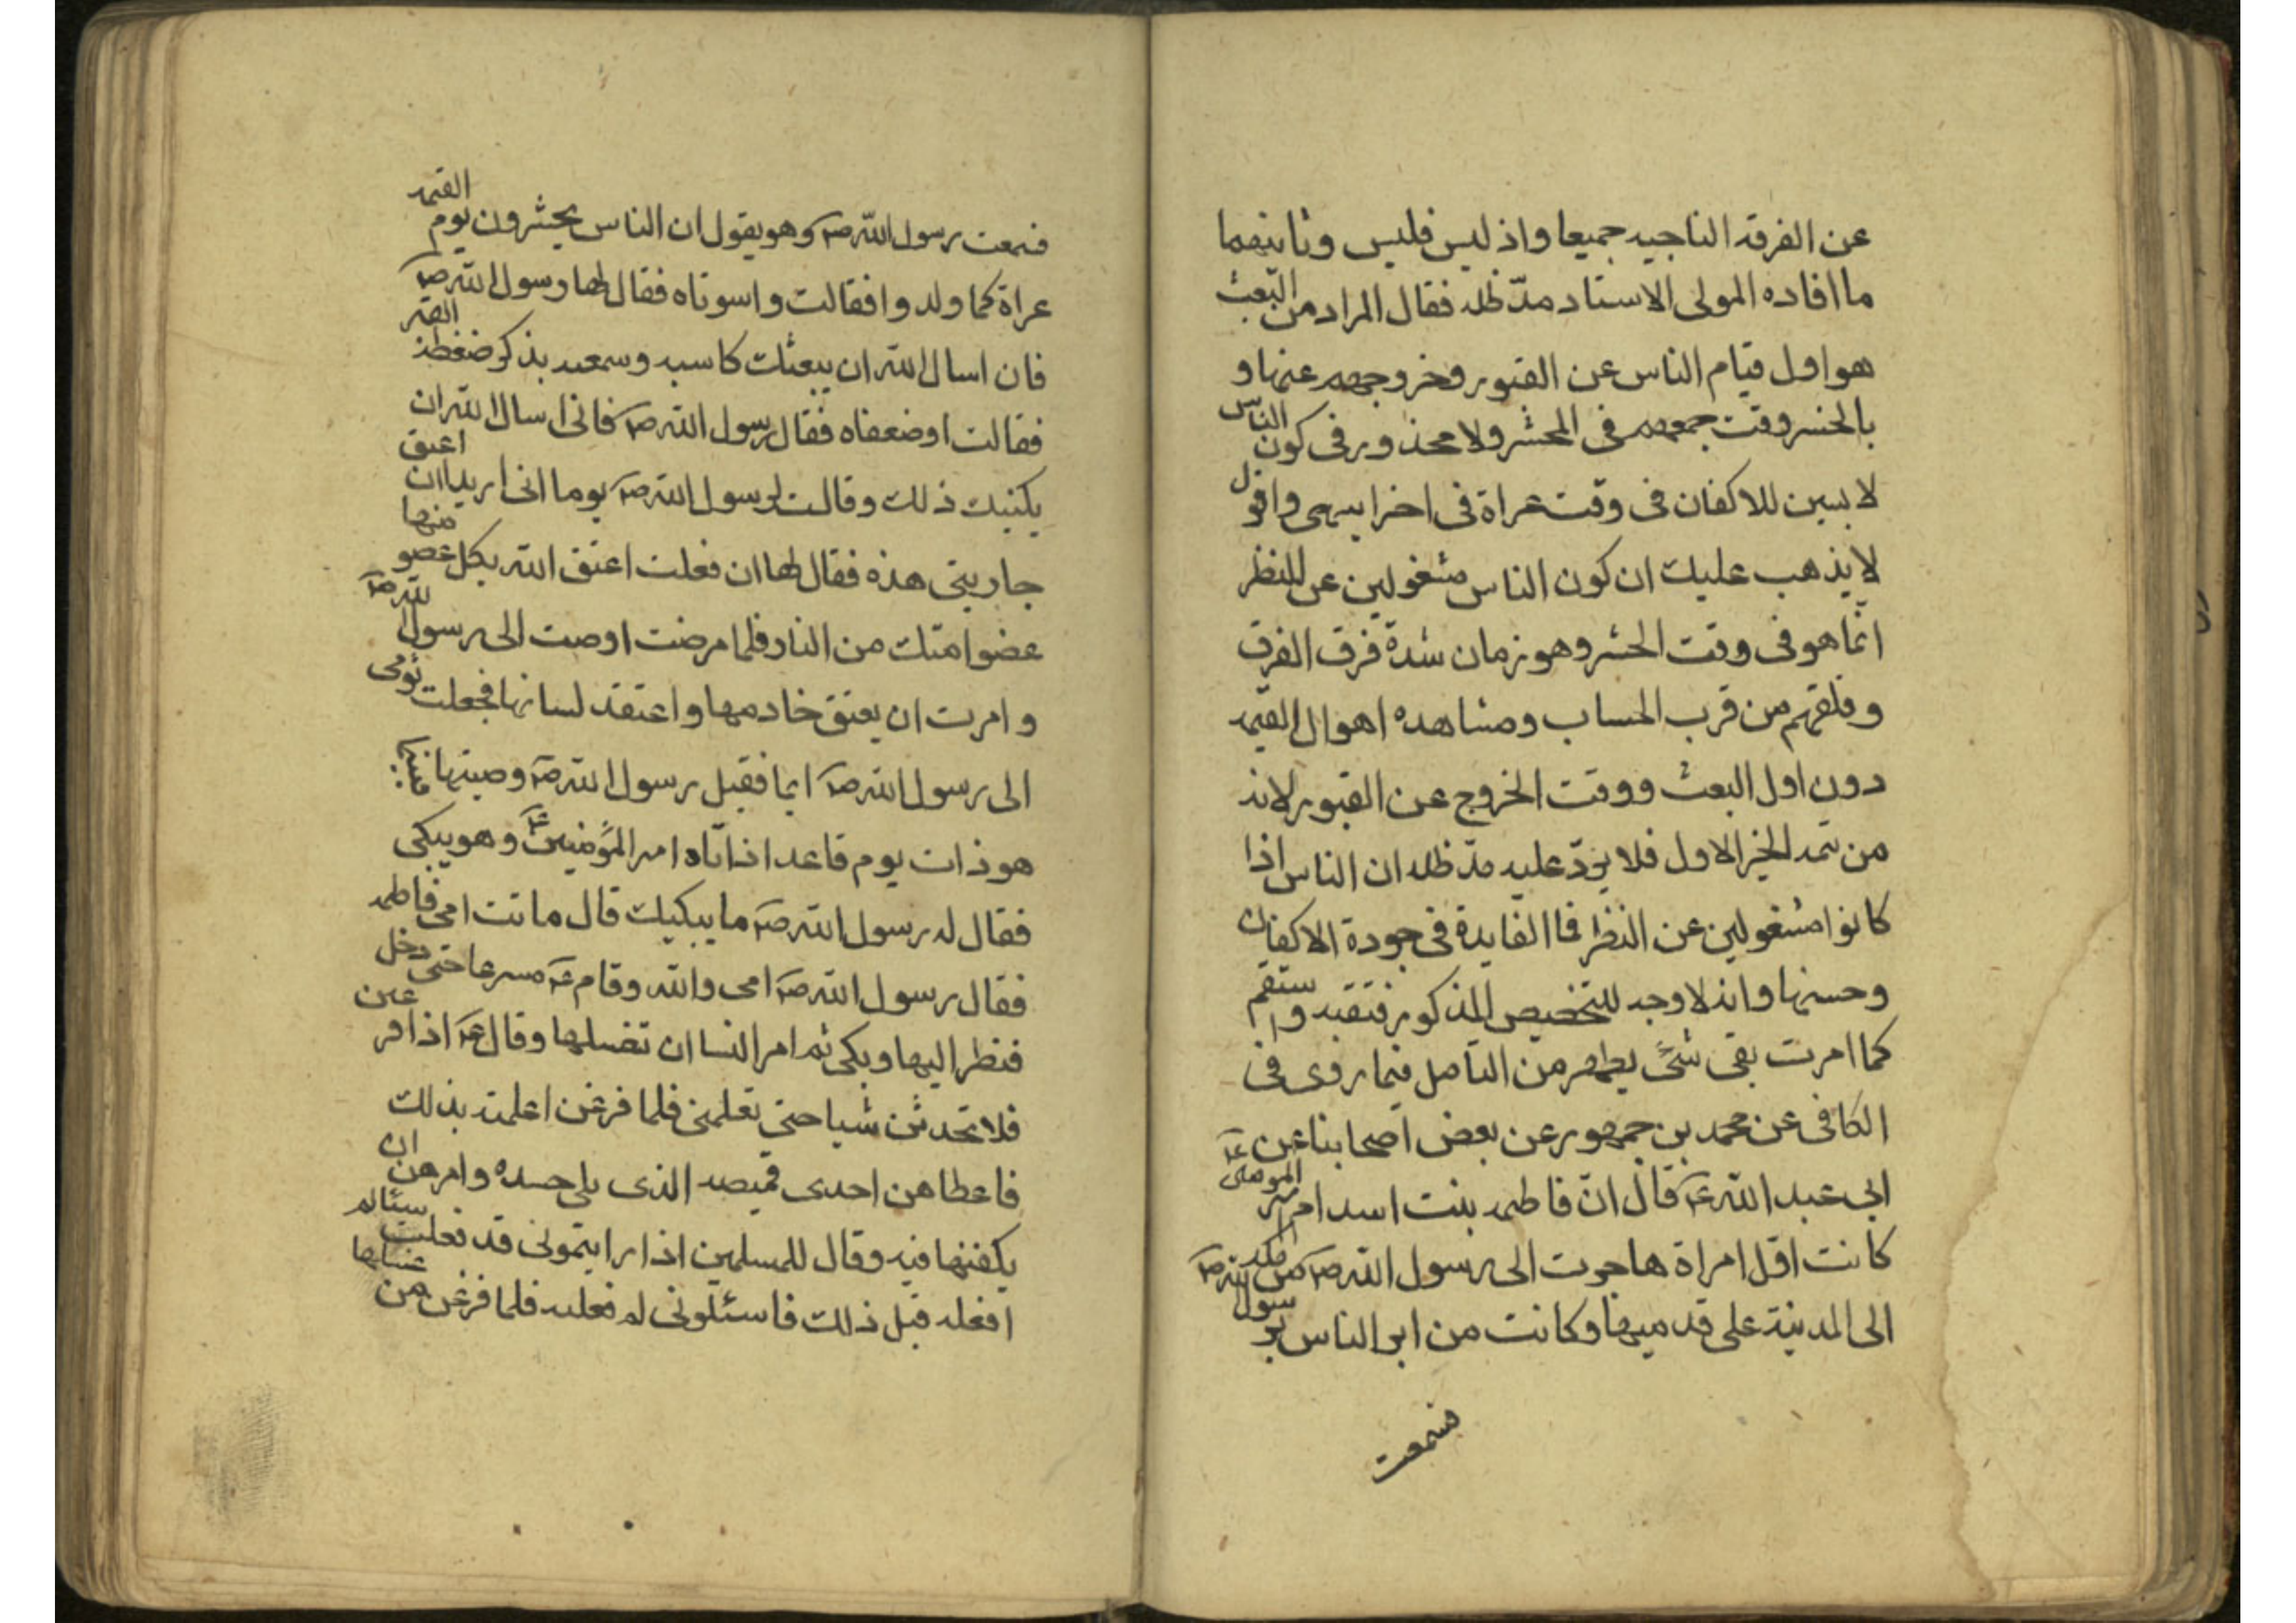 عن الفرقه الناجيه جميعا واذ ليس فليس وثانيهما
ما افاده المولى الاستاد مدّ ظله فقال المراد من البعث
هو اول قيام الناس عن القبور وخروجهم عنها و
بالحشر وقت جمعهم فى المحشر ولا محذور فى كون الناس
لابسين للاكفان فى وقت عراة فى اخر انتهى واقول
لا يذهب عليك ان كون الناس مشغولين عن للنظر
انّما هو فى وقت الحشر وهو زمان شدّة فرق الفرق
وقلقهم من قرب الحساب ومشاهده اهوال القيمه
دون اول البعث ووقت الخروج عن القبور لانه
من تتمه الخبر الاول فلا يردّ عليه مدّ ظله ان الناس اذا
كانوا مشغولين عن النظر فما الفايدة فى جودة الاكفان
وحسنها وانه لا وجه للتخصيص المذكور فتقبه واستقم
كما امرت بقى شئ يظهر من التامل فيما روى فى
الكافى عن محمد بن جمهور عن بعض اصحابنا عن
ابى عبد الله ع قال انّ فاطمه بنت اسد ام امير المومنين ع
كانت اوّل امراة هاجرت الى رسول الله ص من مكه
الى المدينة على قدميها وكانت من ابر الناس برسول الله ص
فسمعت
فسمعت رسول الله ص وهو يقول ان الناس يحشرون يوم القيمه
عراة كما ولدوا فقالت واسوتاه فقال لها رسول الله ص
فان اسال الله ان يبعثك كاسيه وسمعته يذكر ضغطة القبر
فقالت اوضعفاه فقال رسول الله ص فانى اسال الله ان
يكفيك ذلك وقالت لرسول الله ص يوما انى اريد ان اعتق
جاريتى هذه فقال لها ان فعلت اعتق الله بكل عضو منها
عضوا منك من النار فلما مرضت اوصت الى رسول الله ص
وامرت ان يعتق خادمها واعتقد لسانها فجعلت تومى
الى رسول الله ص ايما فقبل رسول الله ص وصيتها فبينما
هو ذات يوم قاعد اذ اتاه امير المؤمنين ع وهو يبكى
فقال له رسول الله ص ما يبكيك قال ماتت امى فاطمه
فقال رسول الله ص امى والله وقام ع مسرعا حتى دخل
فنظر اليها وبكى ثم امر النسا ان تغسلها وقال ع اذا فرغتن
فلا تحدثن شيا حتى تعلمنى فلما فرغن اعلمنه بذلك
فاعطاهن احدى قميصه الذى يلى جسده وامرهن ان
يكفنها فيه وقال للمسلمين اذا رايتمونى قد فعلت شيئا لم
افعله قبل ذلك فاسئلونى لم فعلته فلما فرغن من غسلها